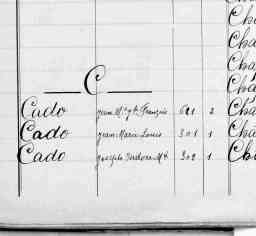 C
Cado Jean M. y h. François 601 2
Cado Jean Marie Louis 301 1
Cado Joseph Isidore Mh 302 1
Cha
Cha
Cha
Cha
Cha
Cha
Cha
Cha